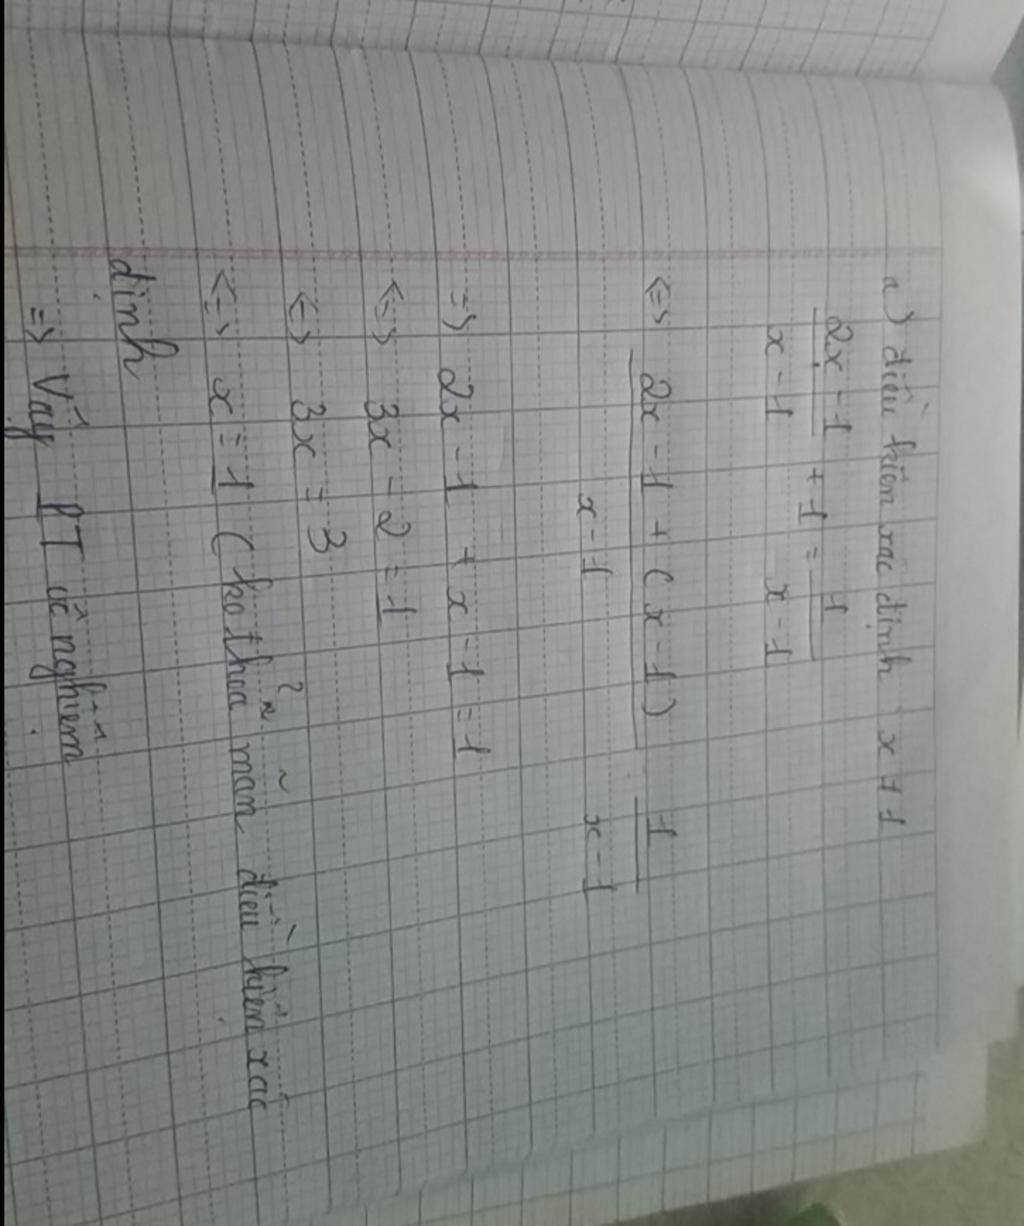 a) điều kiện xác định x ≠ 1
2x - 1 / x - 1 + 1 = 1 / x - 1
<=> 2x - 1 + (x - 1) / x - 1   1 / x - 1
=> 2x - 1 + x - 1 = 1
<=> 3x - 2 = 1
<=> 3x = 3
<=> x = 1 (ko thỏa mãn điều kiện xác
định
=> Vậy PT vô nghiệm